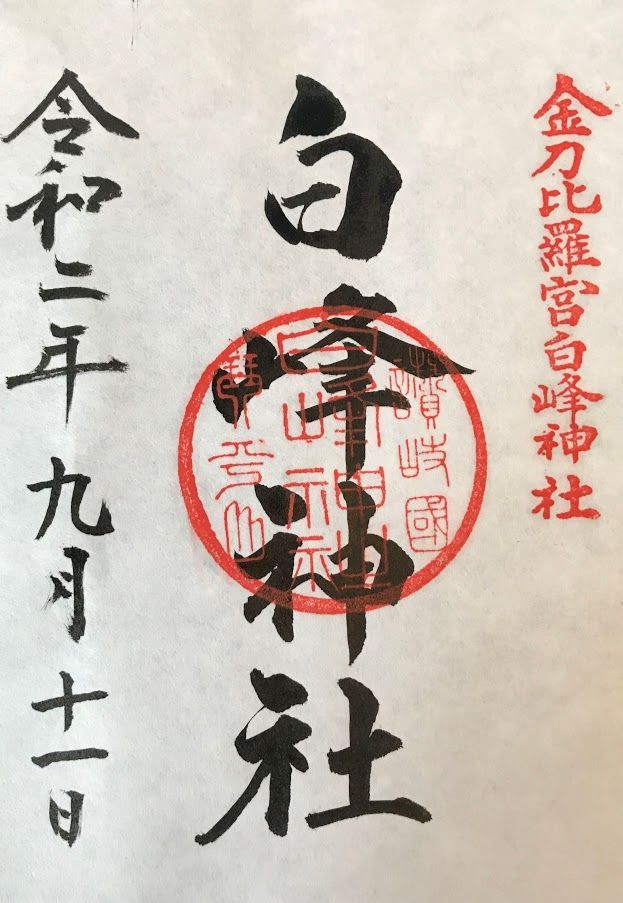 金刀比羅宮白峰神社
白峰神社
讃岐國
白峰神社
令和二年九月十一日